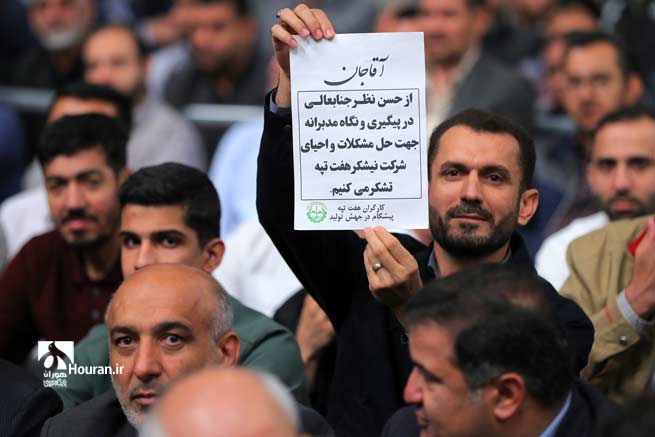 آقاجان
از حسن نظر جنابعالی
در پیگیری و نگاه مدبرانه
جهت حل مشکلات و احیای
شرکت نیشکر هفت تپه
تشکر می کنیم.
کارگران هفت تپه
پیشگام در جهش تولید
هوران
Houran.ir